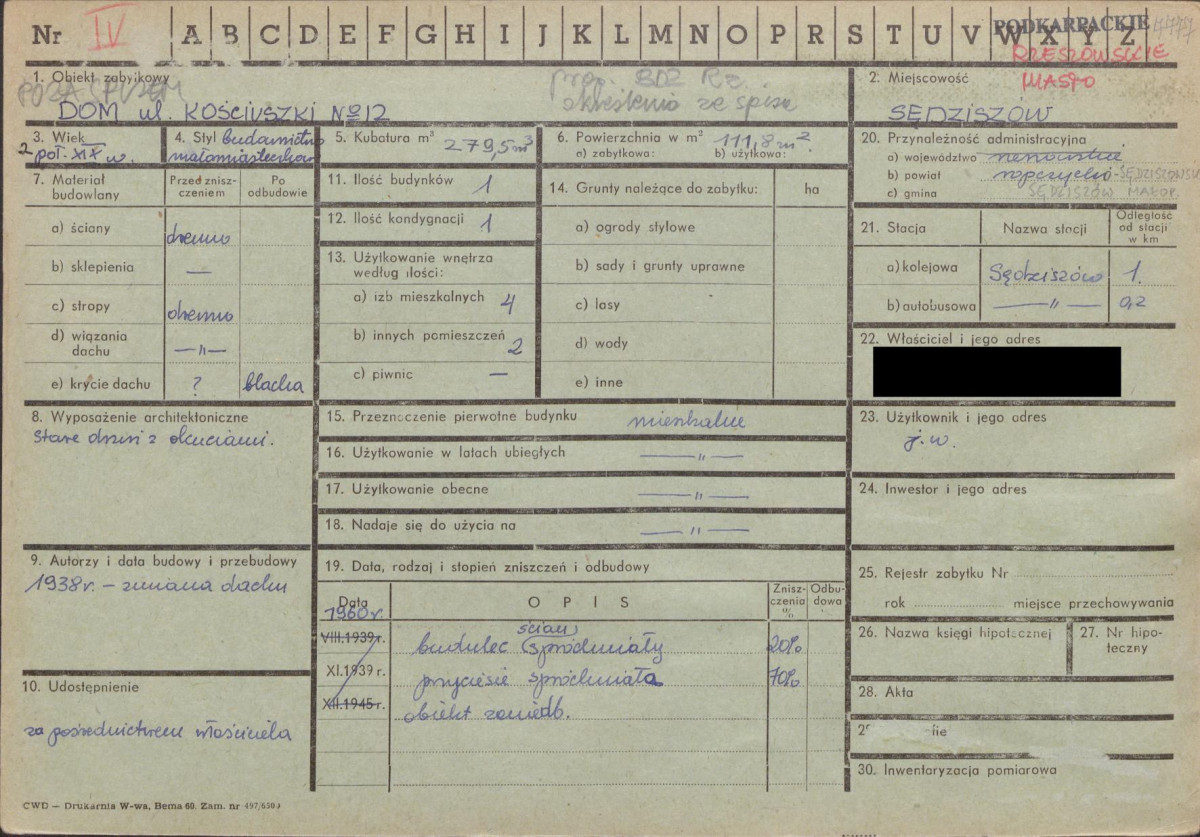 Nr IV A B C D E F G H I J K L M N O P R S T U V W X Y Z
PODKARPACKIE
RZESZOWSKIE
MIASTO
1. Obiekt zabytkowy
POZA SPISEM
prop. BDZ Rz
określenia ze spisu
DOM ul. KOŚCIUSZKI No 12
2. Miejscowość
SĘDZISZÓW
3. Wiek
2 poł. XIX w.
4. Styl budownictwo
małomiasteczkow
5. Kubatura m³ 279,5 m³
6. Powierzchnia w m² 111,8 m²
a) zabytkowa: b) użytkowa:
7. Materiał budowlany
Przed zniszczeniem
Po odbudowie
a) ściany drewno
b) sklepienia —
c) stropy drewno
d) wiązania dachu —„—
e) krycie dachu ? blacha
8. Wyposażenie architektoniczne
Stare drzwi z okuciami.
9. Autorzy i data budowy i przebudowy
1938 r. – zmiana dachu
10. Udostępnienie
za pośrednictwem właściciela
11. Ilość budynków 1
12. Ilość kondygnacji 1
13. Użytkowanie wnętrza
według ilości:
a) izb mieszkalnych 4
b) innych pomieszczeń 2
c) piwnic —
14. Grunty należące do zabytku: ha
a) ogrody stylowe
b) sady i grunty uprawne
c) lasy
d) wody
e) inne
15. Przeznaczenie pierwotne budynku mieszkalne
16. Użytkowanie w latach ubiegłych —„—
17. Użytkowanie obecne —„—
18. Nadaje się do użycia na —„—
19. Data, rodzaj i stopień zniszczeń i odbudowy
Data OPIS Zniszczenia % Odbudowa
1960 r.
VIII.1939 r. budulec ścian spróchniały 20%
XI.1939 r. przyciesie spróchniała 70%
XII.1945 r. obiekt zaniedb.
20. Przynależność administracyjna
a) województwo rzeszowskie
b) powiat ropczycko-SĘDZISZOWSKI
c) gmina SĘDZISZÓW MAŁOP.
21. Stacja Nazwa stacji Odległość od stacji w km
a) kolejowa Sędziszów 1.
b) autobusowa —„— 0,2
22. Właściciel i jego adres
23. Użytkownik i jego adres
j.w.
24. Inwestor i jego adres
25. Rejestr zabytku Nr
rok miejsce przechowywania
26. Nazwa księgi hipotecznej
27. Nr hipoteczny
28. Akta
29 fie
30. Inwentaryzacja pomiarowa
CWD — Drukarnia W-wa, Bema 60. Zam. nr 497/650